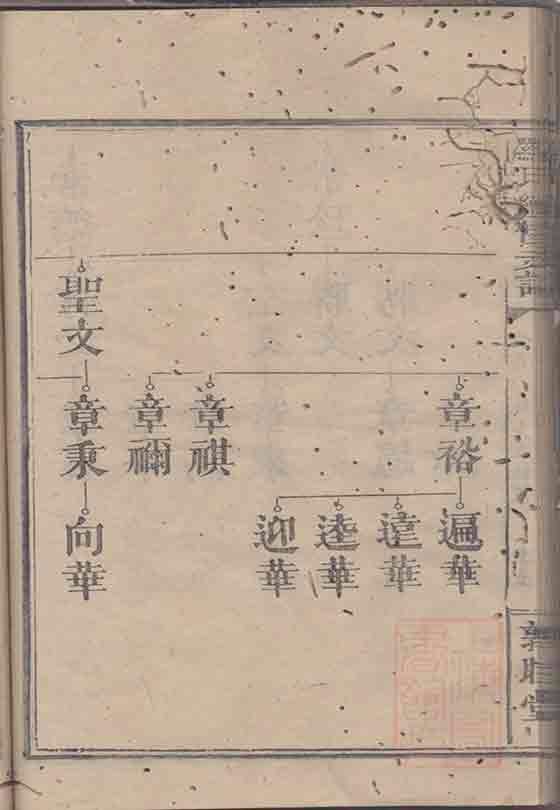 章裕
遍華
達華
逵華
迎華
章祺
章禰
聖文
章秉
向華